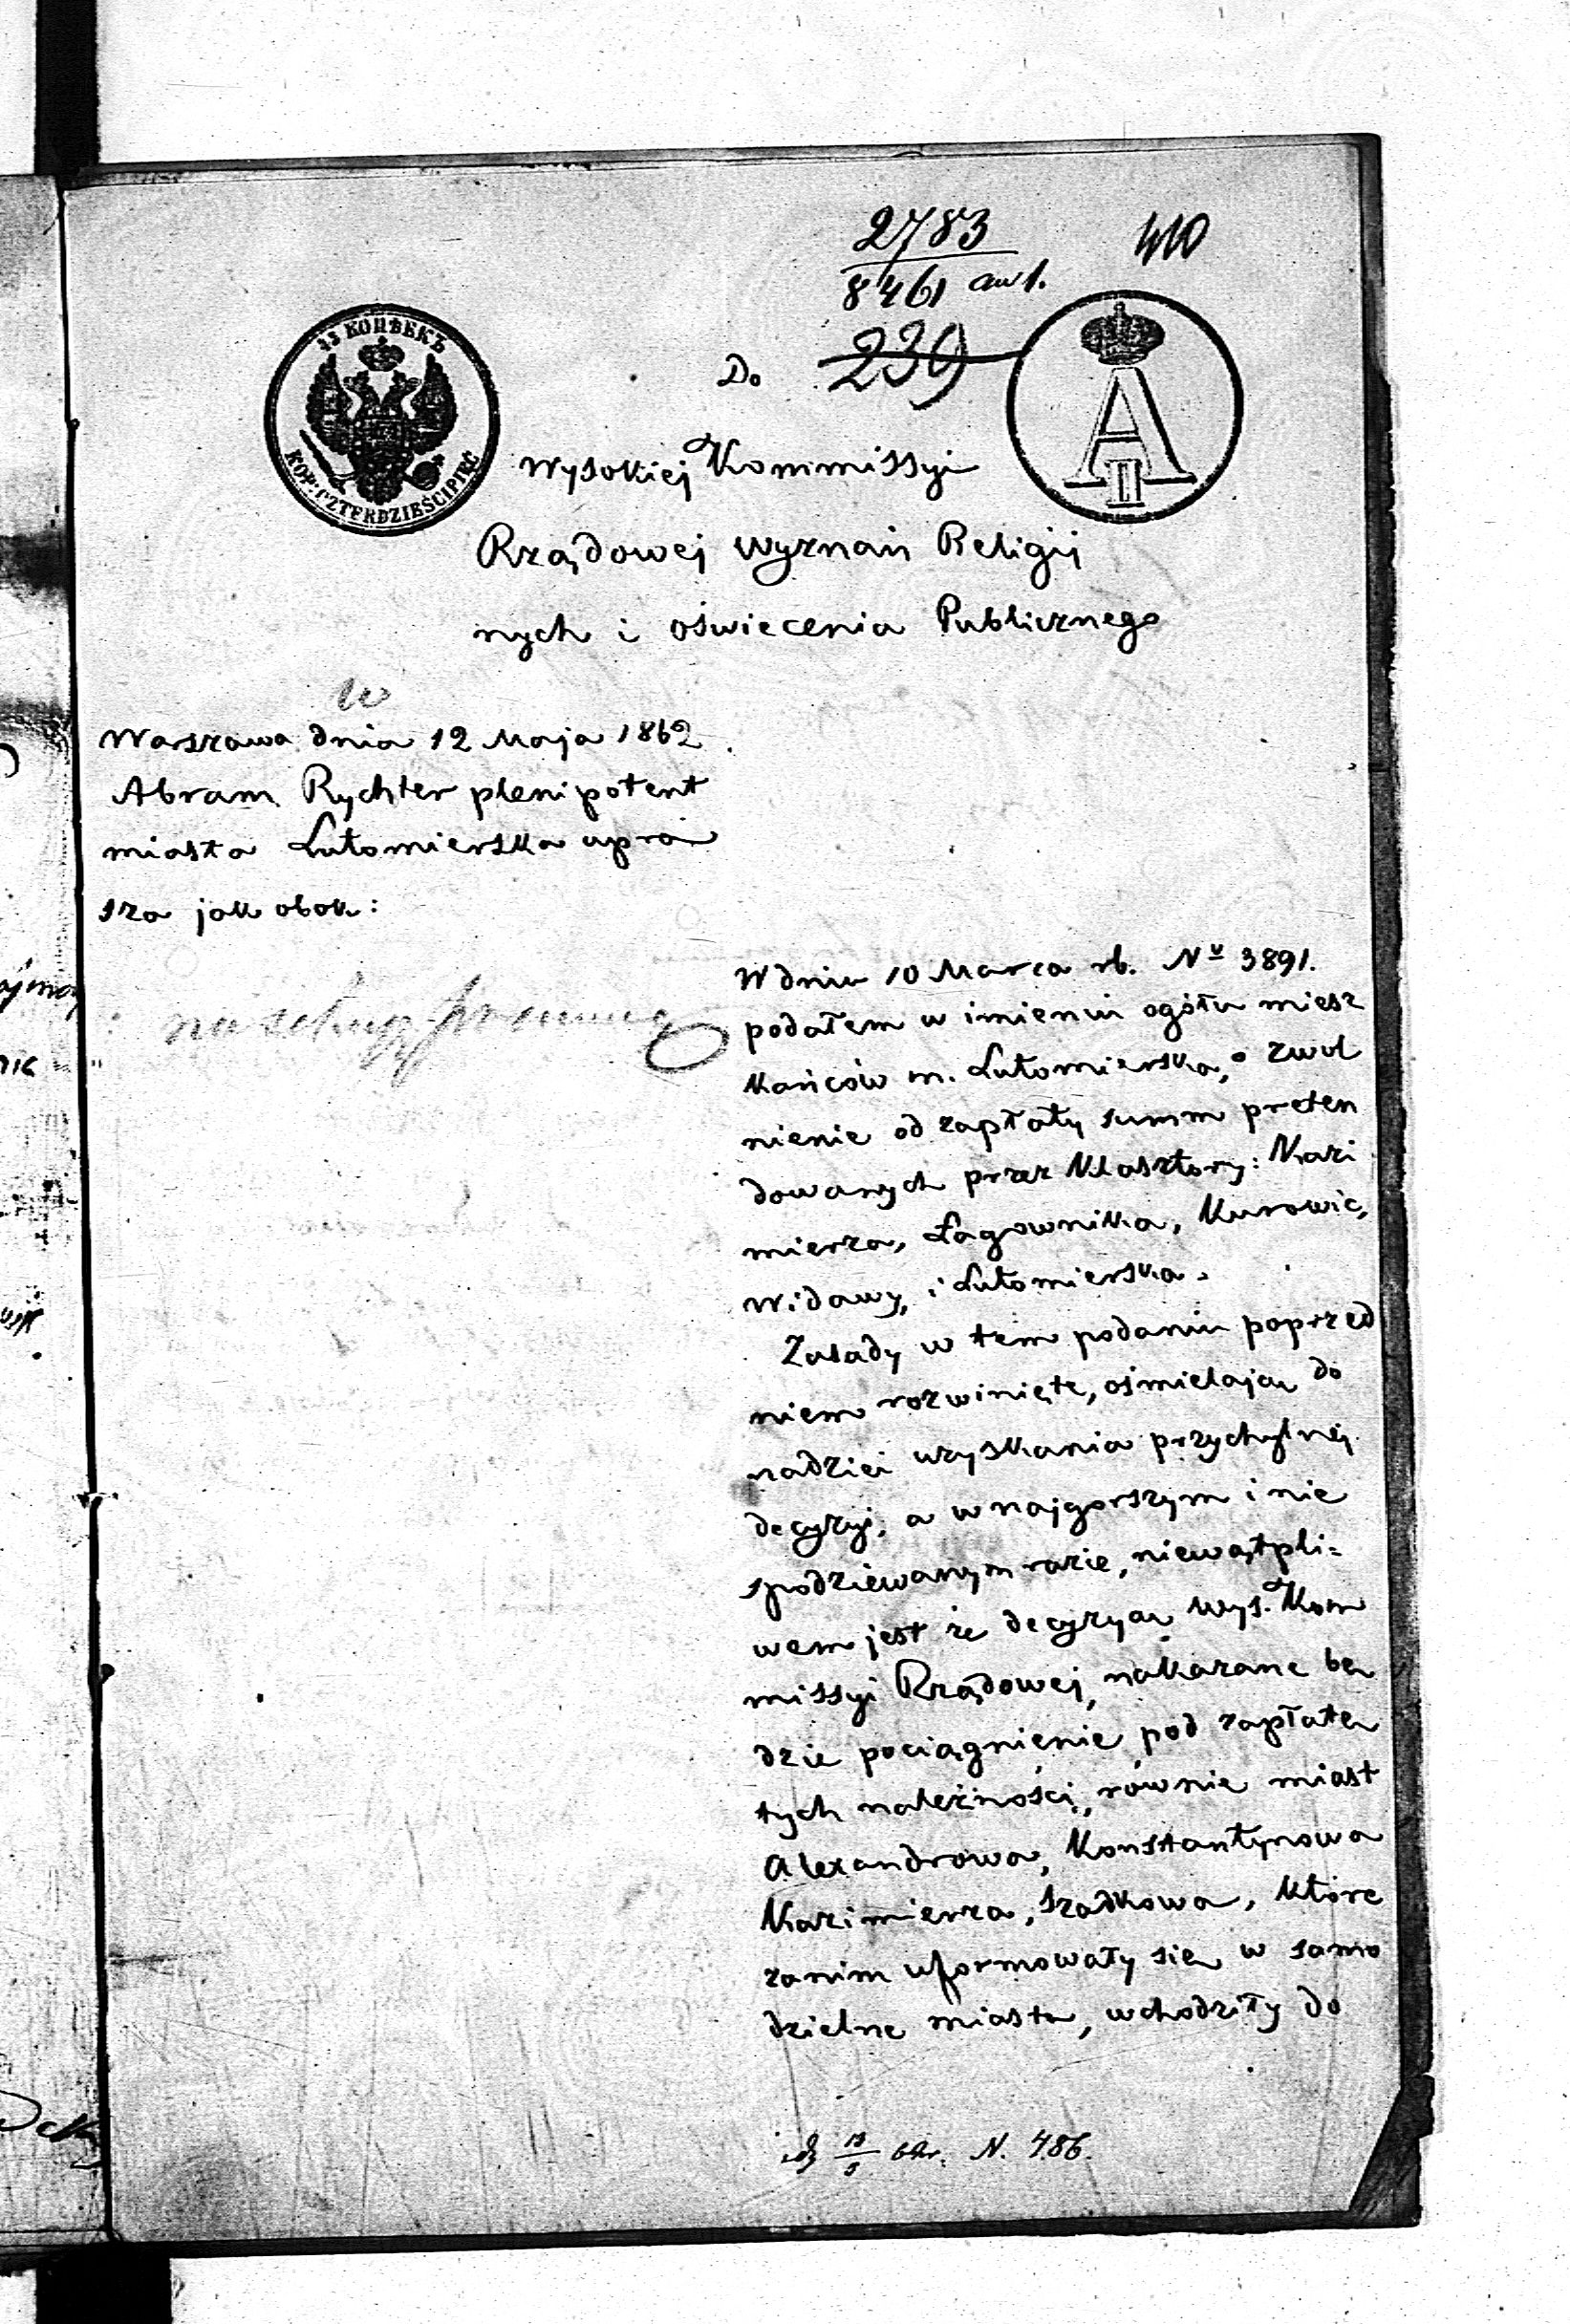 2783
8461 aw 1.
410
239
45 КОПѢЕКЪ
KOP: CZTERDZIEŚCI PIĘĆ
A II
Do
Wysokiej Kommissyi
Rządowej wyznań Religij
nych i oświecenia Publicznego
W
Warszawa dnia 12 Maja 1862
Abram Rychter plenipotent
miasta Lutomierska upra
sza jak obok:
W dniu 10 Marca rb. Nº 3891.
podałem w imieniu ogółu miesz
kańców m. Lutomierska, o zwol
nienie od zapłaty summ preten
dowanych przez Klasztory: Kazi
mierza, Łagownika, Kurowic,
Widawy, i Lutomierska.
Zasady w tem podaniu poprzed
niem rozwinięte, ośmielają do
nadziei uzyskania przychylnej
decyzyi, a w najgorszym i nie
spodziewanym razie, niewątpli=
wem jest że decyzyą Wys. Kom
missyi Rządowej, nakazane bę
dzie pociągnienie pod zapłatę
tych należności, równie miast
Alexandrowa, Konstantynowa
Kazimierza, Szadkowa, które
zanim uformowały się w samo
dzielne miasta, wchodziły do
13/5 62 r. N. 486.